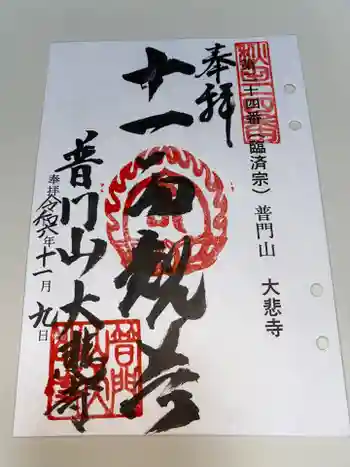 奉拝
第二十四番（臨済宗）普門山　大悲寺
十一面観音
普門山大悲寺
奉拝 令和六年十一月九日